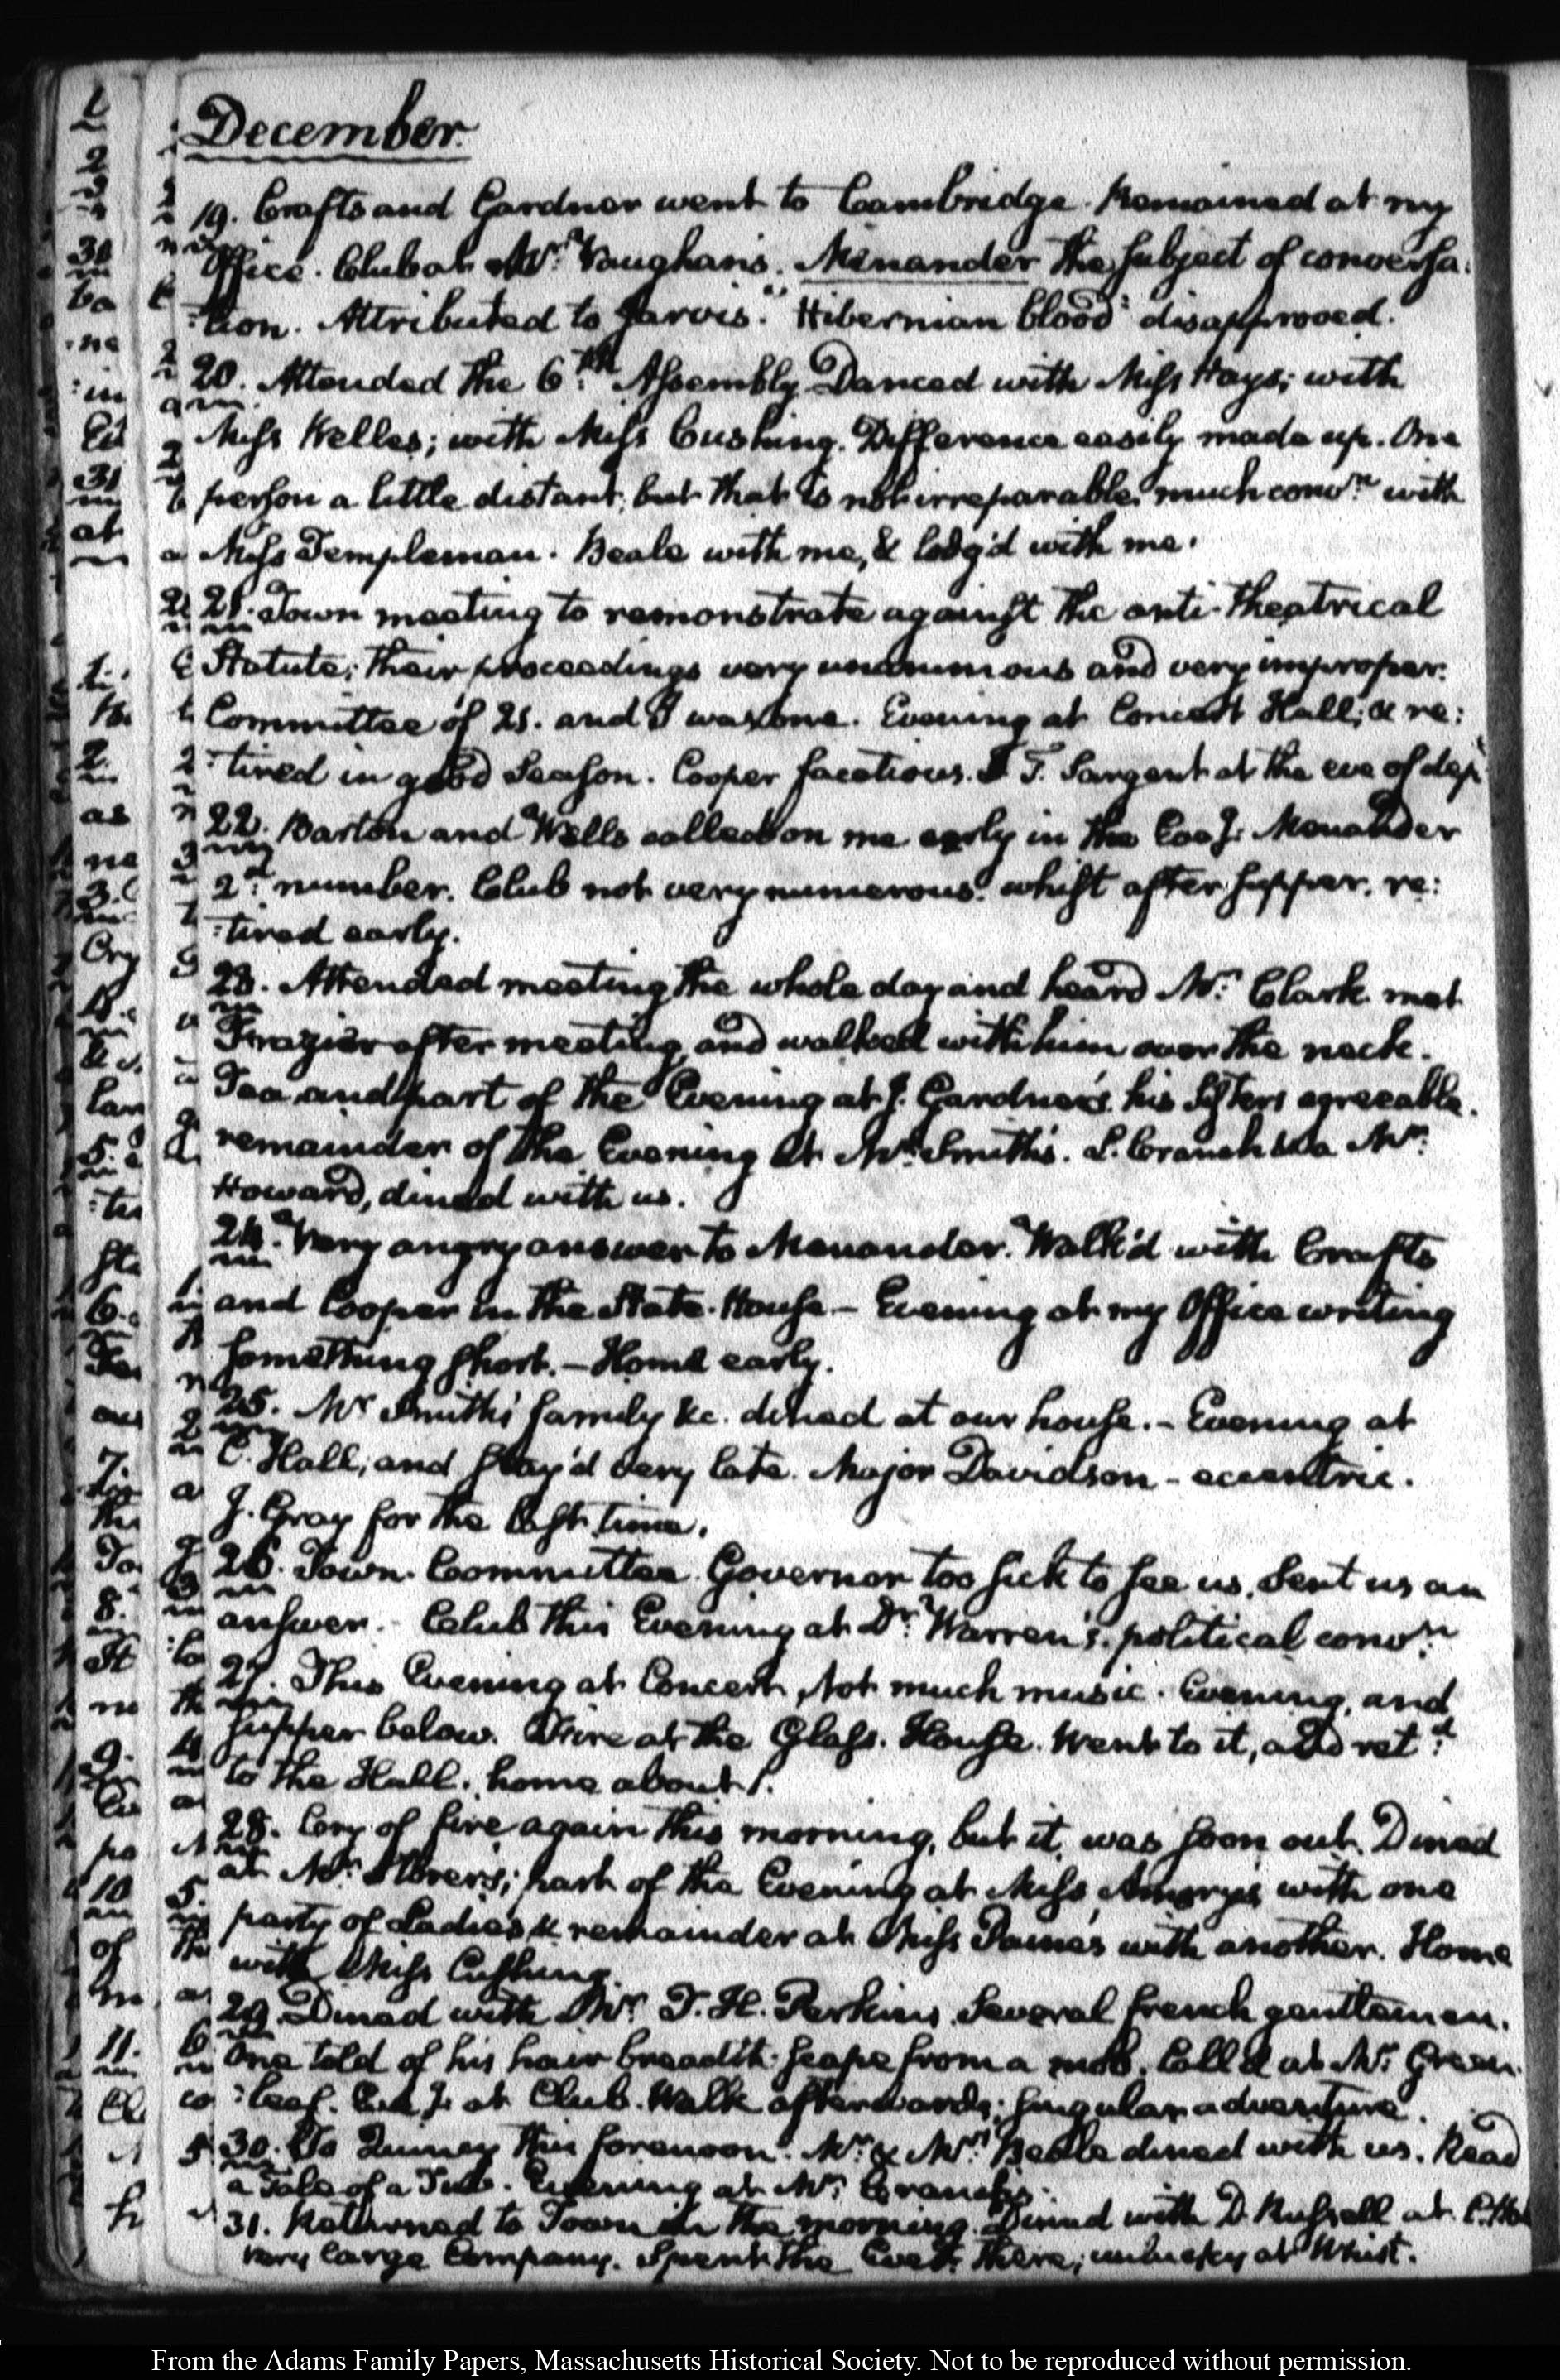 December.
19. Crafts and Gardner went to Cambridge. Remained at my
Office. Club at Mr. Vaughan's. Menander the subject of conversa:
:tion. Attributed to Jarvis. "Hibernian blood" disapproved.
20. Attended the 6th. Assembly. Danced with Miss Hays; with
Miss Kelles; with Miss Cushing. Difference easily made up. One
person a little distant; but that is not irreparable, much convn. with
Miss Templeman. Beale with me, & lodg'd with me.
21. Town meeting to remonstrate against the anti-theatrical
Statute; their proceedings very unanimous and very improper.
Committee of 21. and I was one. Evening at Concert Hall; & re:
:tired in good Season. Cooper facetious. T. Sargent at the eve of dep
22. Barton and Wells called on me early in the Eveg. Menander
2d. number. Club not very numerous. whist after supper. re:
:tired early.
23. Attended meeting the whole day and heard Mr. Clark. met
Frazier after meeting, and walked with him over the neck.
Tea and part of the Evening at J. Gardner's. his Sisters agreeable.
remainder of the Evening at Mr. Smith's. L. Cranch & a Mr.
Howard, dined with us.
24. Very angry answer to Menander. Walk'd with Crafts
and Cooper in the State-House — Evening at my Office writing
something short. — Home early.
25. Mr. Smith's family &c. dined at our house. — Evening at
C. Hall, and stay'd very late. Major Davidson — eccentric.
J. Gray for the last time.
26. Town-Committee. Governor too sick to see us. Sent us an
answer. Club this Evening at Dr. Warren's. political convn.
27. This Evening at Concert, Not much music. Evening, and
supper below. Fire at the Glass-House. Went to it, and retd.
to the Hall. home about 1.
28. Cry of fire again this morning, but it was soon out. Dined
at Mr. Storer's; part of the Evening at Miss Amory's with one
party of Ladies & remainder at Miss Paine's with another. Home
with Miss Cushing.
29. Dined with Mr. T. H. Perkins. Several french gentlemen.
One told of his hair breadth scape from a mob. Call'd at Mr. Green
:leaf. Eveg. at Club. Walk afterwards; singular adventure.
30. To Quincy this forenoon. Mr. & Mrs. Beale dined with us. Read
a Tale of a Tub. Evening at Mr. Cranch's.
31. Returned to Town in the morning. Dined with D. Russell at C. Ha
very large Company. Spent the Eveg. there; unlucky at Whist.
From the Adams Family Papers, Massachusetts Historical Society. Not to be reproduced without permission.